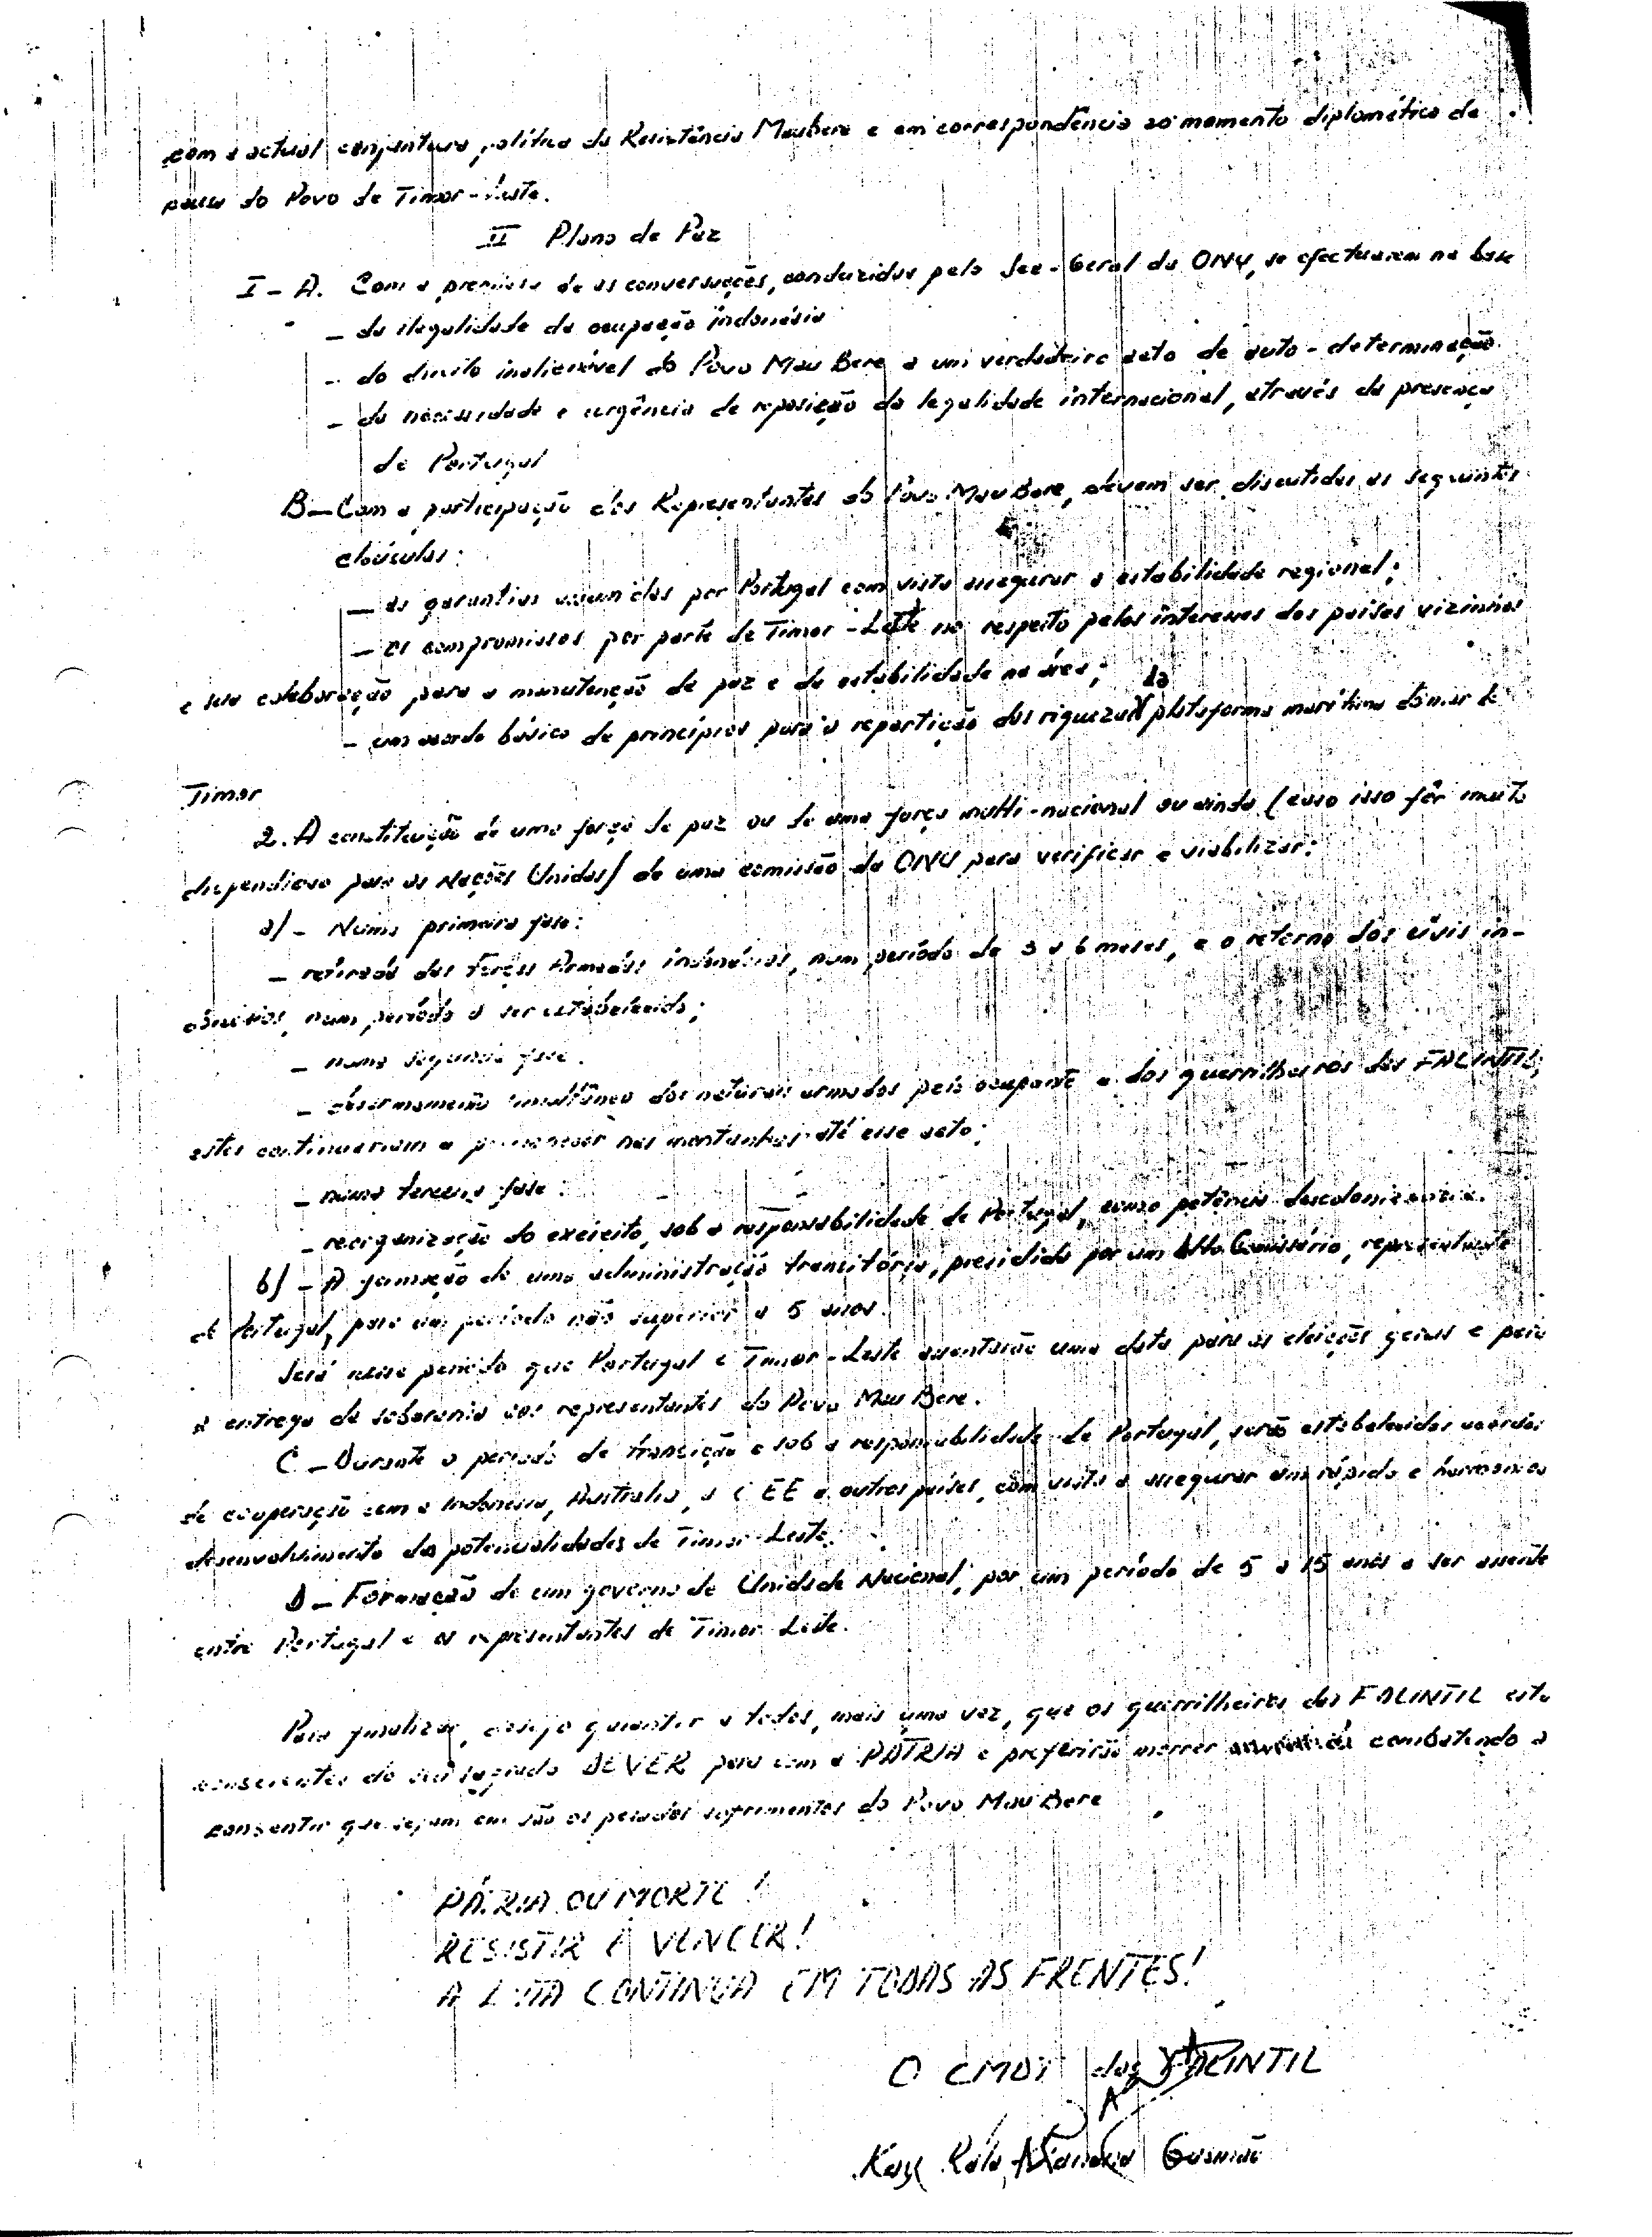 com a actual conjuntura política da Resistência Maubere e em correspondência ao momento diplomático da
do Povo de Timor-Leste.
II Plano de Paz
I - A. Com a premissa de as conversações, conduzidas pelo Sec-Geral da ONU, se efectuarem na base
- da ilegalidade da ocupação indonésia
- do direito inalienável do Povo Mau Bere a um verdadeiro acto de auto-determinação
- da necessidade e urgência de reposição da legalidade internacional, através da presença
de Portugal
B - Com a participação dos Representantes do Povo Mau Bere, devem ser discutidas as seguintes
claúsulas:
- as garantias assumidas por Portugal com vista assegurar a estabilidade regional;
- os compromissos por parte de Timor-Leste no respeito pelos interesses dos países vizinhos
e sua colaboração para a manutenção de paz e da estabilidade na área;
- um acordo básico de princípios para a repartição das riquezas da plataforma marítima do mar de
Timor
2. A constituição de uma força de paz ou de uma força multi-nacional ou ainda (caso isso fôr muito
dispendioso para as Nações Unidas) de uma comissão da ONU para verificar e viabilizar:
a) - Numa primeira fase:
- retirada das Forças Armadas indonésias, num período de 3 a 6 meses, e o retorno dos civis in-
donésios, num período a ser estabelecido;
- numa segunda fase:
- desarmamento simultâneo dos naturais armados pelo ocupante e dos guerrilheiros das FALINTIL;
estes continuariam a permanecer nas montanhas até esse acto;
- numa terceira fase:
- reorganização do exército, sob a responsabilidade de Portugal, como potência descolonizadora.
b) - A formação de uma administração transitória, presidida por um Alto Comissário, representante
de Portugal, para um período não superior a 5 anos.
Será nesse período que Portugal e Timor-Leste assentarão uma data para as eleições gerais e para
a entrega da soberania aos representantes do Povo Mau Bere.
C - Durante o período de transição e sob a responsabilidade de Portugal, serão estabelecidos acordos
de cooperação com a Indonésia, Austrália, a CEE e outros países, com vista a assegurar um rápido e harmonioso
desenvolvimento das potencialidades de Timor-Leste.
D - Formação de um governo de Unidade Nacional, por um período de 5 a 15 anos a ser assente
entre Portugal e os representantes de Timor-Leste.
Para finalizar, desejo garantir a todos, mais uma vez, que os guerrilheiros das FALINTIL estão
conscientes do seu sagrado DEVER para com a PÁTRIA e preferirão morrer combatendo a
consentir que sejam em vão os pesados sofrimentos do Povo Mau Bere.
PÁTRIA OU MORTE!
RESISTIR É VENCER!
A LUTA CONTINUA EM TODAS AS FRENTES!
O CMDT das FALINTIL
Kay Rala Xanana Gusmão